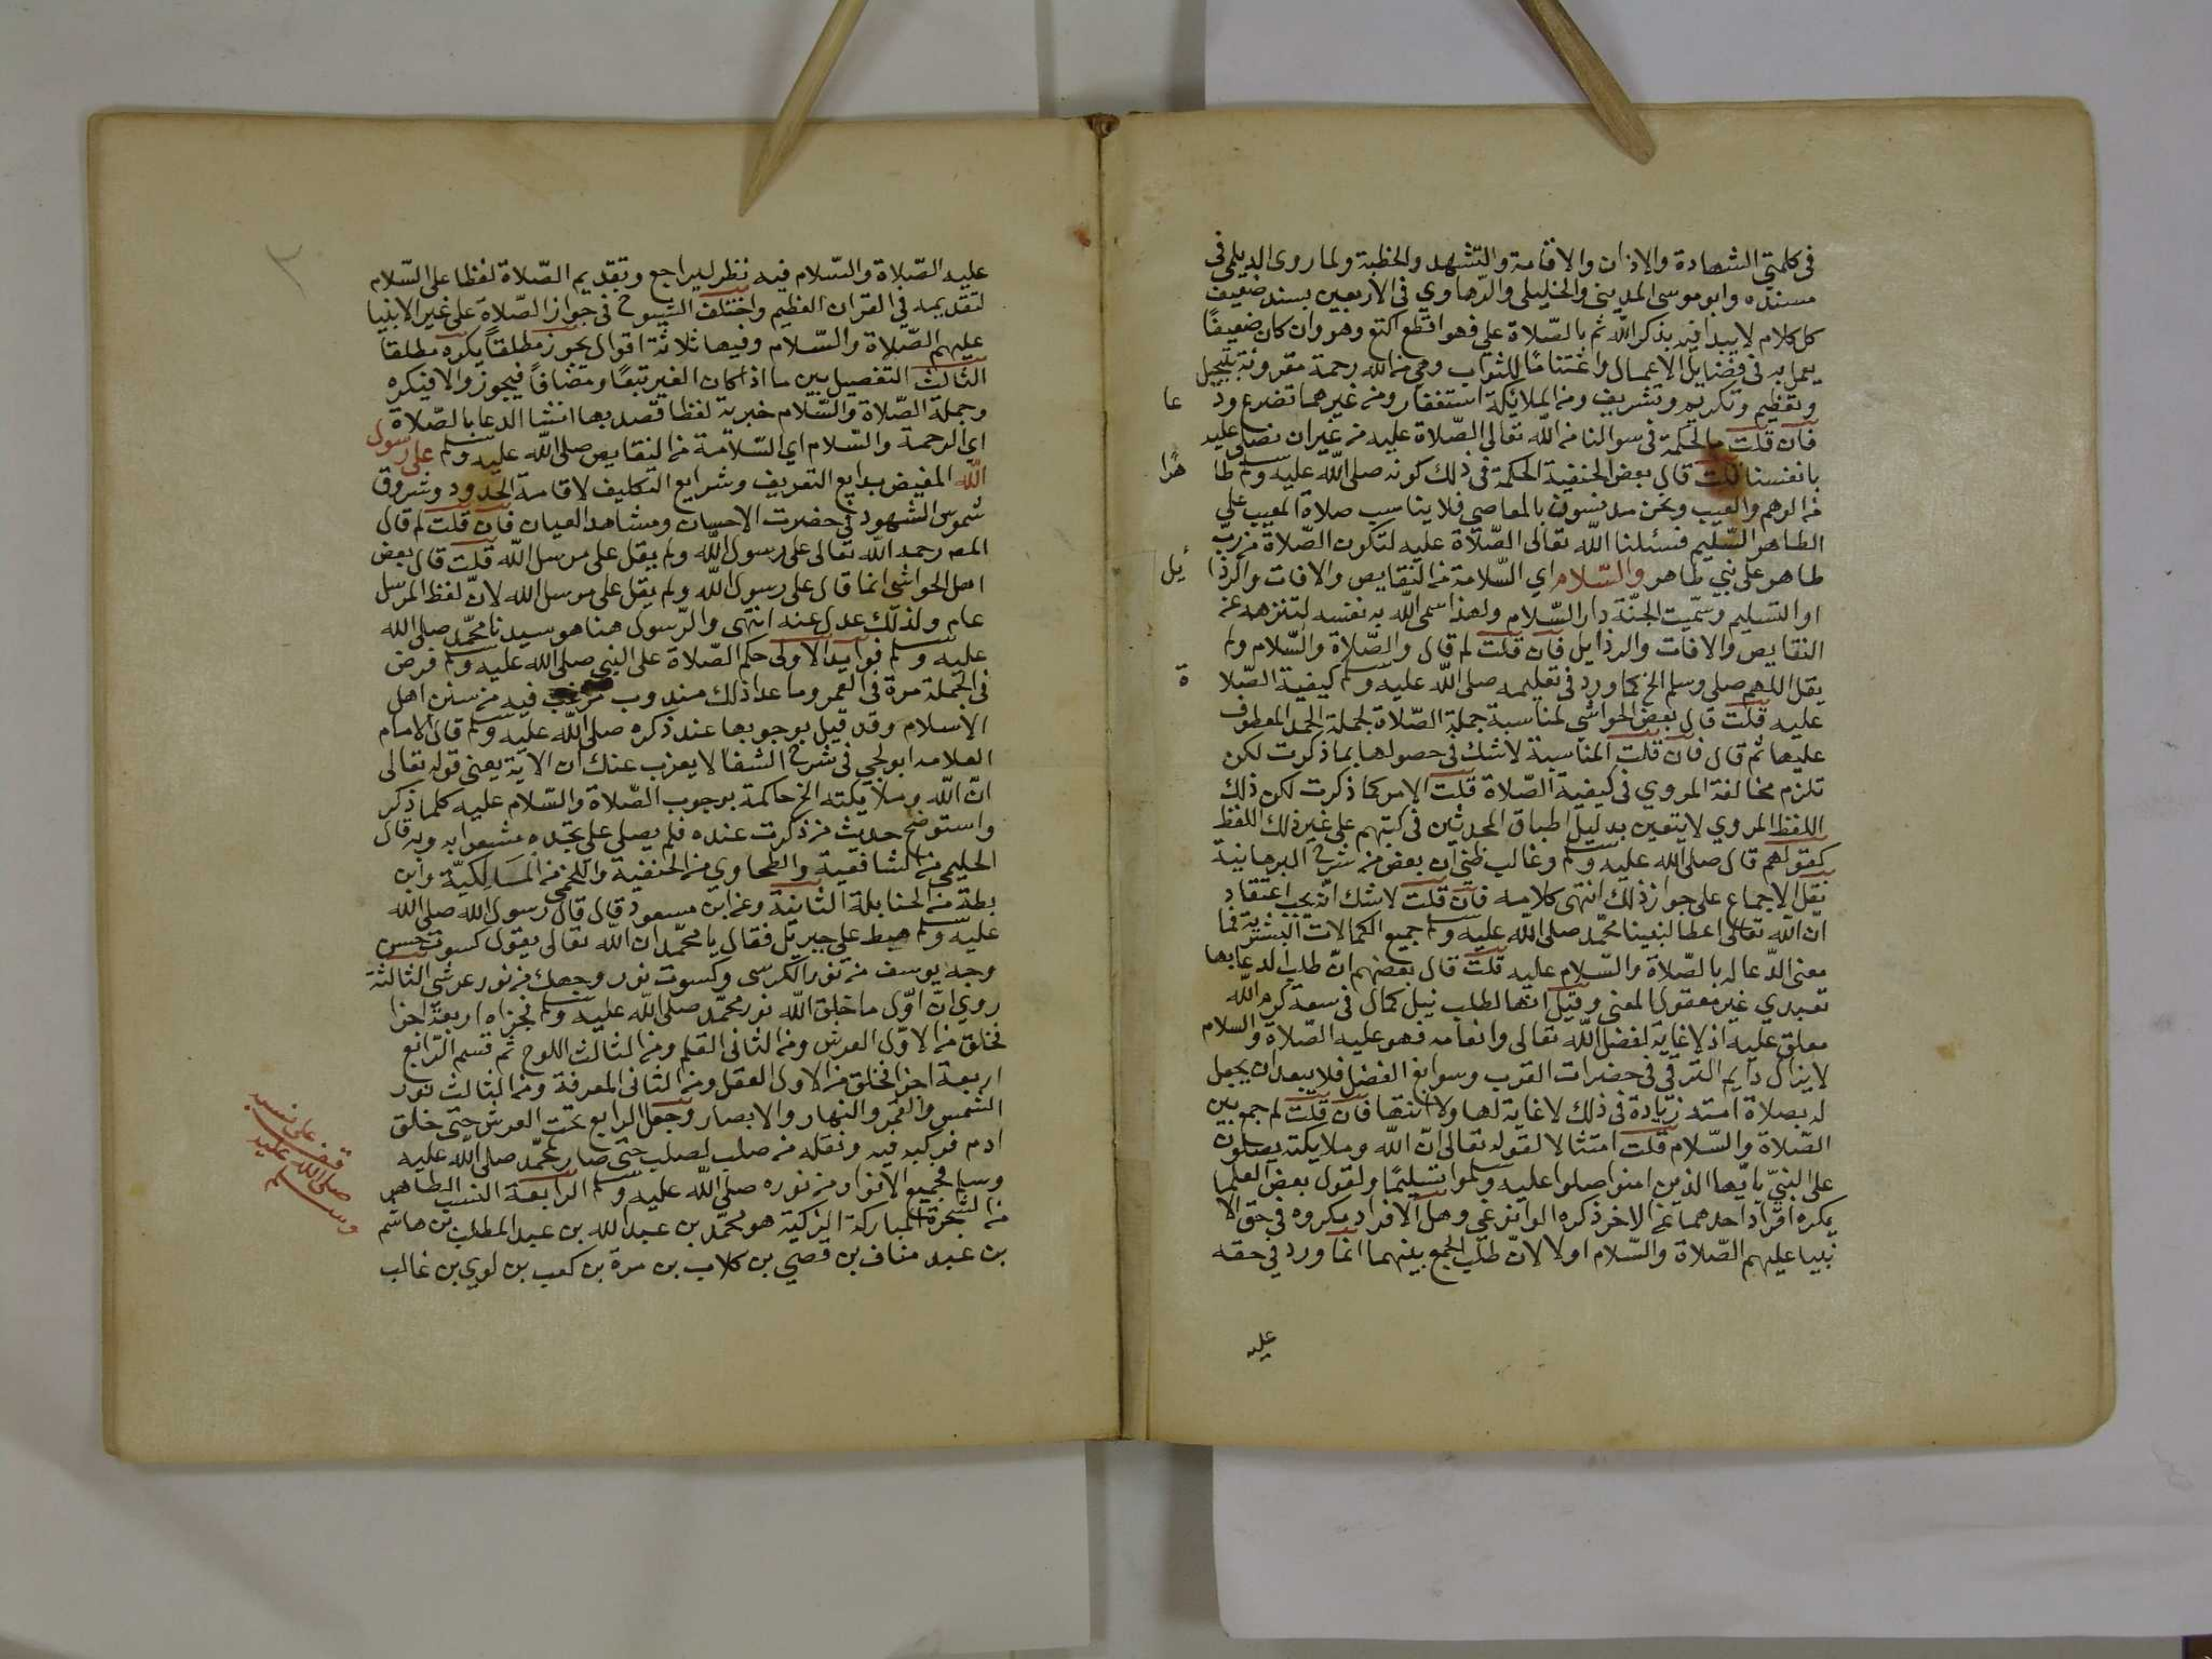 في كلمتي الشهادة والاذان والاقامة والتشهد والخطبة ولما روى الديلمي في
مسنده وابو موسى المديني والخليلي والرهاوي في الاربعين بسند ضعيف
كل كلام لا يبدا فيه بذكر الله ثم بالصلاة علي فهو اقطع اكتع وهو وان كان ضعيفا
يعمل به في فضايل الاعمال واغتناما للثواب وهي من الله رحمة مقرونة بتبجيل
وتعظيم وتكريم وتشريف ومن الملايكة استغفار ومن غيرهما تضرع ود عا
فان قلت ما الحكمة في سوالنا من الله تعالى الصلاة عليه من غير ان نصلي عليه
بانفسنا قلت قال بعض الحنفية الحكمة في ذلك كونه صلى الله عليه وسلم طا هرا
من الوهم والعيب ونحن مدنسون بالمعاصي فلا يناسب صلاة المعيب على
الطاهر السليم فسئلنا الله تعالى الصلاة عليه لتكون الصلاة من رب
طاهر على نبي طاهر والسلام اي السلامة من النقايص والافات والرذا يل
او التسليم وسميت الجنة دار السلام ولهذا سمى الله به نفسه لتنزهه عن
النقايص والافات والرذايل فان قلت لم قال والصلاة والسلام ولم
يقل اللهم صلي وسلم الخ كما ورد في تعليمه صلى الله عليه وسلم كيفية الصلا ة
عليه قلت قال بعض الحواشي لمناسبة جملة الصلاة لجملة الحمد المعطوف
عليها ثم قال فان قلت المناسبة لا شك في حصولها بما ذكرت لكن
تلزم مخالفة المروي في كيفية الصلاة قلت الامر كما ذكرت لكن ذلك
اللفظ المروي لا يتعين بدليل اطباق المحدثين في كتبهم على غير ذلك اللفظ
كقولهم قال صلى الله عليه وسلم وغالب ظني ان بعض من شرح البرهانية
نقل الاجماع على جواز ذلك انتهى كلامه فان قلت لا شك انه يجب اعتقاد
ان الله تعالى اعطا لنبينا محمد صلى الله عليه وسلم جميع الكمالات البشرية فما
معنى الدعا له بالصلاة والسلام عليه قلت قال بعضهم ان طلب الدعا بها
تعبدي غير معقول المعنى وقيل انها لطلب نيل كمال في سعة كرم الله
معلق عليه اذ لا غاية لفضل الله تعالى وانعامه فهو عليه الصلاة والسلام
لا يزال دايم الترقي في حضرات القرب وسوابغ الفضل فلا يبعد ان يحصل
له بصلاة امته زيادة في ذلك لا غاية لها ولا انتها فان قلت لم جمع بين
الصلاة والسلام قلت امتثالا لقوله تعالى ان الله وملايكته يصلون
على النبي يا يها الذين امنوا صلوا عليه وسلموا تسليما ولقول بعض العلما
يكره افراد احدهما عن الاخر ذكره الوانوغي وهل الافراد مكروه في حق الا
نبيا عليهم الصلاة والسلام اولا لان طلب الجمع بينهما انما ورد في حقه
عليه
عليه الصلاة والسلام فيه نظر ليراجع وتقديم الصلاة لفظا على السلام
لتقديمه في القران العظيم واختلف الشيوخ في جواز الصلاة على غير الانبيا
عليهم الصلاة والسلام وفيها ثلاثة اقوال يجوز مطلقا يكره مطلقا
الثالث التفصيل بين ما اذا كان الغير تبعا ومضافا فيجوز والا فيكره
وجملة الصلاة والسلام خبرية لفظا قصد بها انشا الدعا بالصلاة
اي الرحمة والسلام اي السلامة من النقايص صلى الله عليه وسلم على رسول
الله المفيض بدايع التعريف وشرايع التكليف لاقامة الحدود وشروق
شموس الشهود في حضرت الاحسان ومشاهد العيان فان قلت لم قال
المص رحمه الله تعالى على رسول الله ولم يقل على مرسل الله قلت قال بعض
اهل الحواشي انما قال على رسول الله ولم يقل على مرسل الله لان لفظ المرسل
عام ولذلك عدل عنه انتهى والرسول هنا هو سيدنا محمد صلى الله
عليه وسلم فوايد الاولى حكم الصلاة على النبي صلى الله عليه وسلم فرض
في الجملة مرة في العمر وما عدا ذلك مندوب مرغب فيه من سنن اهل
الاسلام وقد قيل بوجوبها عند ذكره صلى الله عليه وسلم قال الامام
العلامه في شرح الشفا لا يعزب عنك ان الاية يعني قوله تعالى
ان الله وملايكته الخ حاكمة بوجوب الصلاة والسلام عليه كلما ذكر
واستوضح حديث من ذكرت عنده فلم يصلي علي تجده مشعرا به وبه قال
الحليمي من الشافعية والطحاوي من الحنفية واللخمي من المالكية وابن
بطة من الحنابلة الثانية وعن ابن مسعود قال قال رسول الله صلى الله
عليه وسلم هبط علي جبريل فقال يا محمد ان الله تعالى يقول كسوت حسن
وجه يوسف من نور الكرسي وكسوت نور وجهك من نور عرشي الثالثة
روي ان اول ما خلق الله نور محمد صلى الله عليه وسلم فجزاه اربعة اجزا
فخلق من الاول العرش ومن الثاني القلم ومن الثالث اللوح ثم قسم الرابع
اربعة اجزا فخلق من الاول العقل ومن الثاني المعرفة ومن الثالث نور
الشمس والقمر والنهار والابصار وجعل الرابع تحت العرش حتى خلق
ادم فركبه فيه ونقله من صلب لصلب حتى صار محمد صلى الله عليه
وسلم فجميع الانوار من نوره صلى الله عليه وسلم الرابعة النسب الطاهر
من الشجرة المباركة الزكية هو محمد بن عبد الله بن عبد المطلب بن هاشم
بن عبد مناف بن قصي بن كلاب بن مرة بن كعب بن لوي بن غالب
قف على نسبه
صلى الله عليه
وسلم